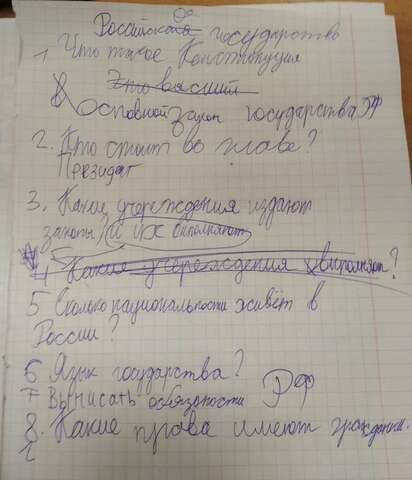 Российское государство
1 Что такое Конституция
Это высший
Основной закон государства РФ
2. Кто стоит во главе?
Президат
3. Какие учереждения издают
законы, и их исполняют
4 Какие учереждения исполняют?
5 Сколько национальности живёт в
России?
6 Язык государства?
7 Выписать обязаности РФ
8. Какие права имеют граждани.